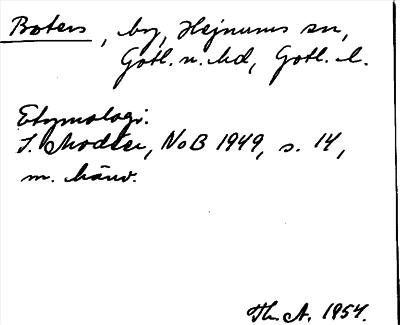 Boters, by, Hejnums sn,
Gotl. n. hd, Gotl. l.
Etymologi:
I. Modéer, NoB 1949, s. 14,
m. hänv.
Th. A. 1954.